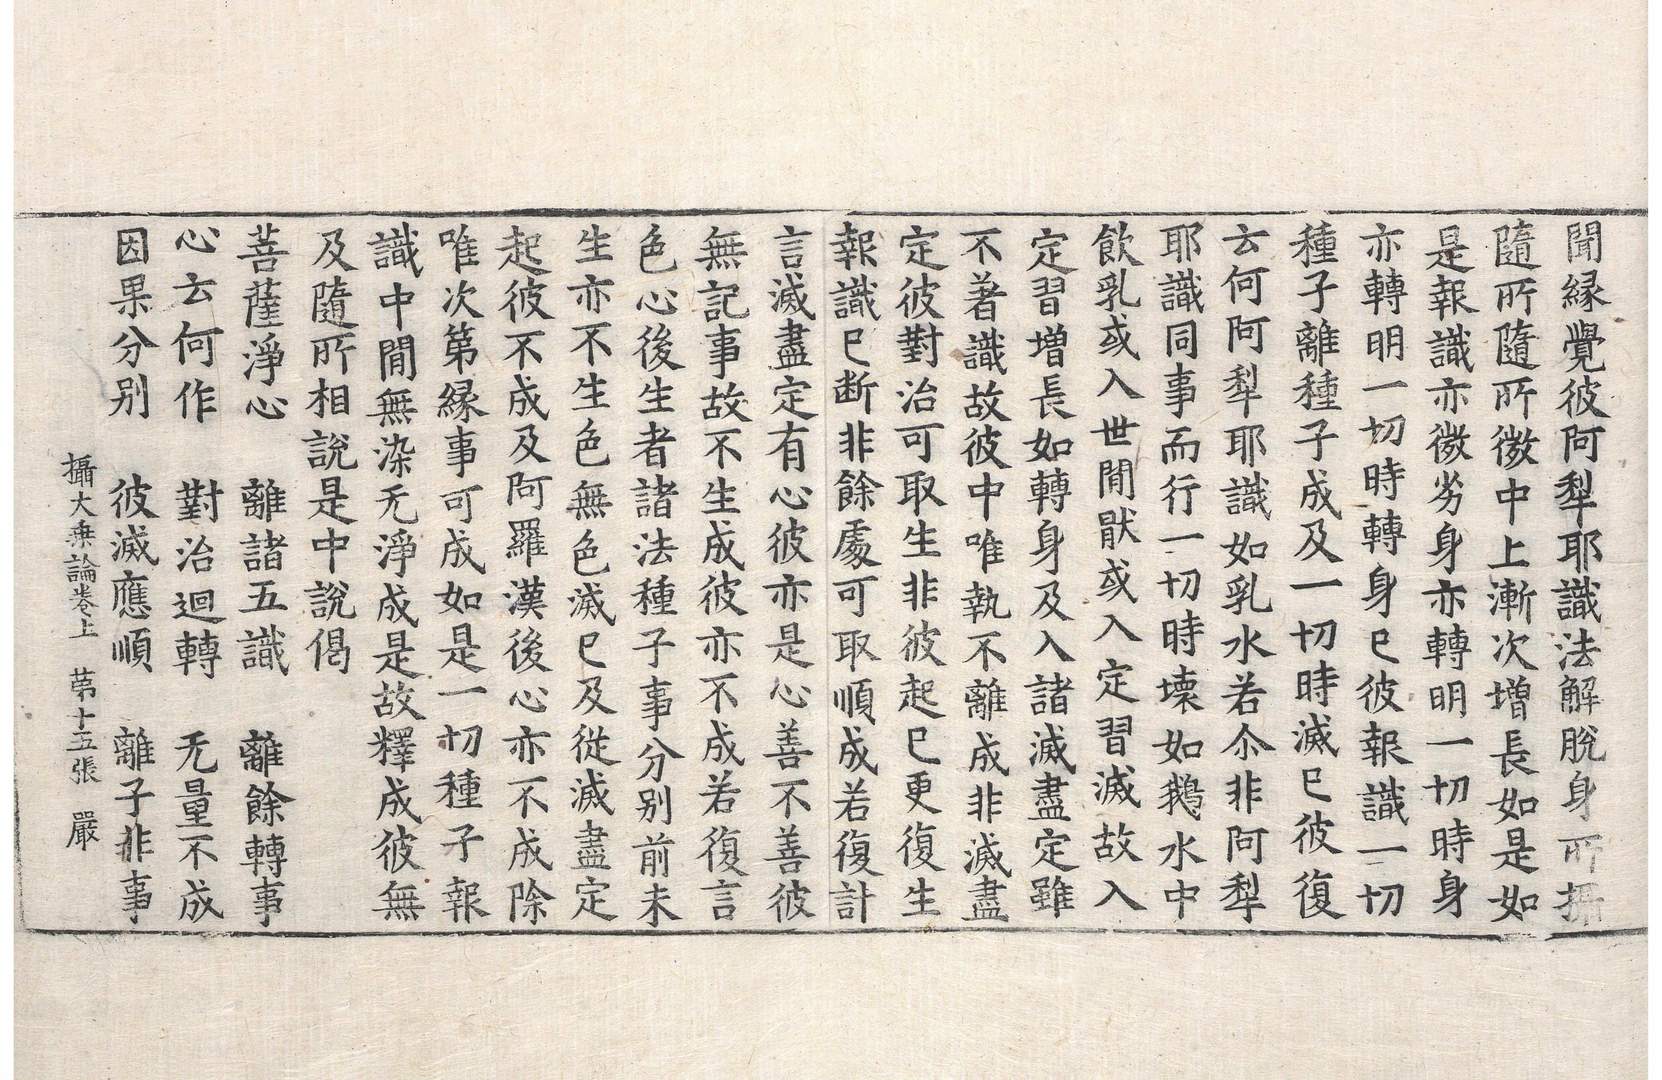 聞縁覺彼阿犁耶識法解脫身所攝
隨所隨所微中上漸次增長如是如
是報識亦微劣身亦轉明一切時身
亦轉明一切時轉身已彼報識一切
種子離種子成及一切時滅已彼復
云何阿犁耶識如乳水若尒非阿犁
耶識同事而行一切時壞如鵝水中
飲乳或入世間猒或入定習滅故入
定習增長如轉身及入諸滅盡定雖
不著識故彼中唯執不離成非滅盡
定彼對治可取生非彼起已更復生
報識已断非餘處可取順成若復計
言滅盡定有心彼亦是心善不善彼
無記事故不生成彼亦不成若復言
色心後生者諸法種子事分別前未
生亦不生色無色滅已及從滅盡定
起彼不成及阿羅漢後心亦不成除
唯次第縁事可成如是一切種子報
識中間無染无淨成是故釋成彼無
及隨所相說是中說偈
菩薩淨心　離諸五識　離餘轉事
心云何作　對治迴轉　无量不成
因果分别　彼滅應順　離子非事
攝大乗論卷上　第十五張　嚴